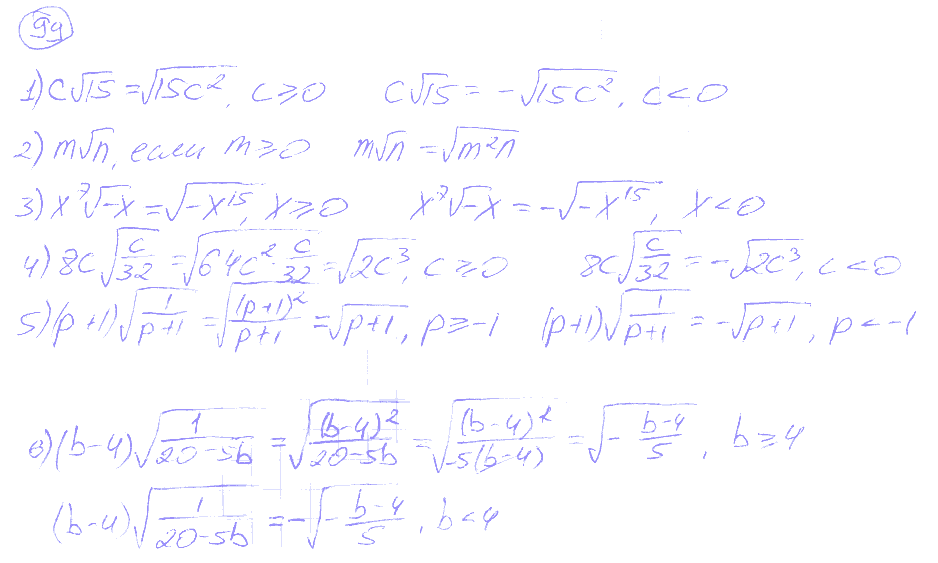 99
1) c√15 = √15c², c ≥ 0 c√15 = -√15c², c < 0
2) m√n, если m ≥ 0 m√n = √m²n
3) x⁷√-x = √-x¹⁵, x ≥ 0 x⁷√-x = -√-x¹⁵, x < 0
4) 8c√(c/32) = √(64c² · c/32) = √2c³, c ≥ 0 8c√(c/32) = -√2c³, c < 0
5) (p+1)√(1/(p+1)) = √((p+1)²/(p+1)) = √p+1, p ≥ -1 (p+1)√(1/(p+1)) = -√p+1, p < -1
6) (b-4)√(1/(20-5b)) = √((b-4)²/(20-5b)) = √((b-4)²/(-5(b-4))) = √(-(b-4)/5), b ≥ 4
(b-4)√(1/(20-5b)) = -√(-(b-4)/5), b < 4